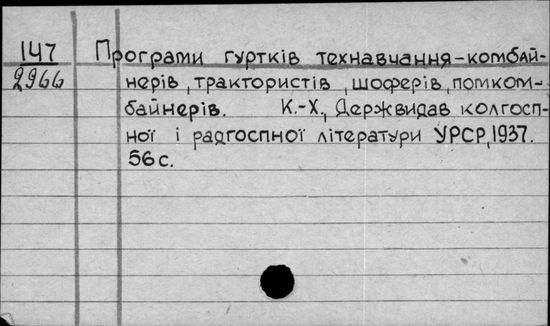 147
2966
Програми гуртків технавчання-комбай-
нерів, трактористів, шоферів, помком-
байнерів. К.-Х., Держвидав колгосп-
ної і радгоспної літератури УРСР, 1937.
56 с.